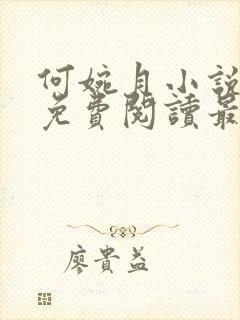 何婉月小說
免費閱讀最
廖貴益